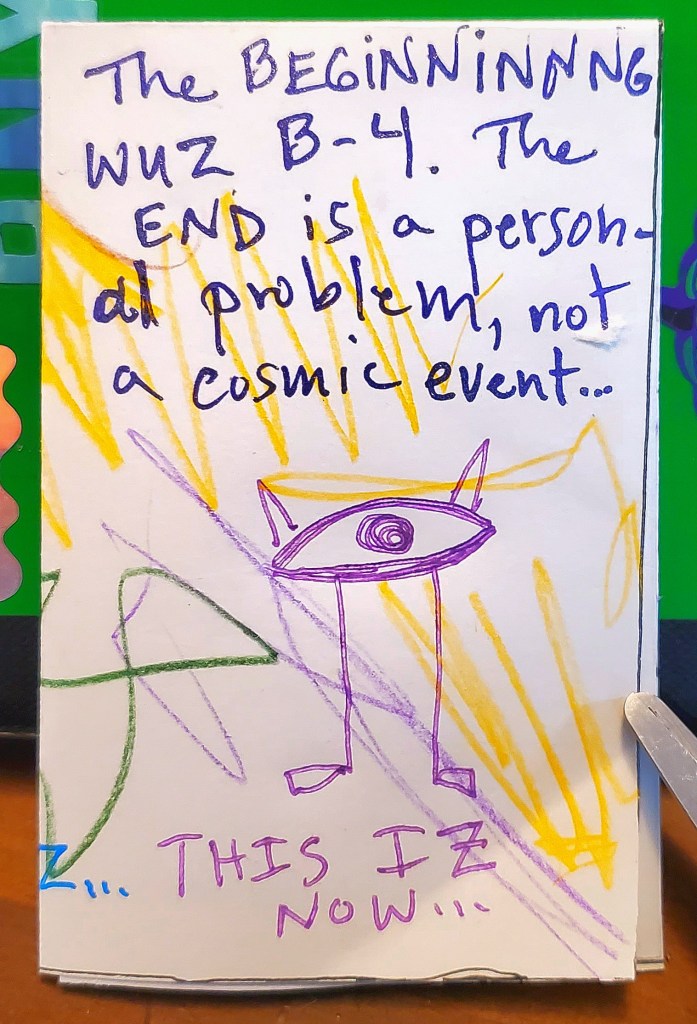 The BEGiNNiNNNG
WUZ B-4. The
END is a person-
al problem, not
a cosmic event...
Z...
THIS IZ
NOW...